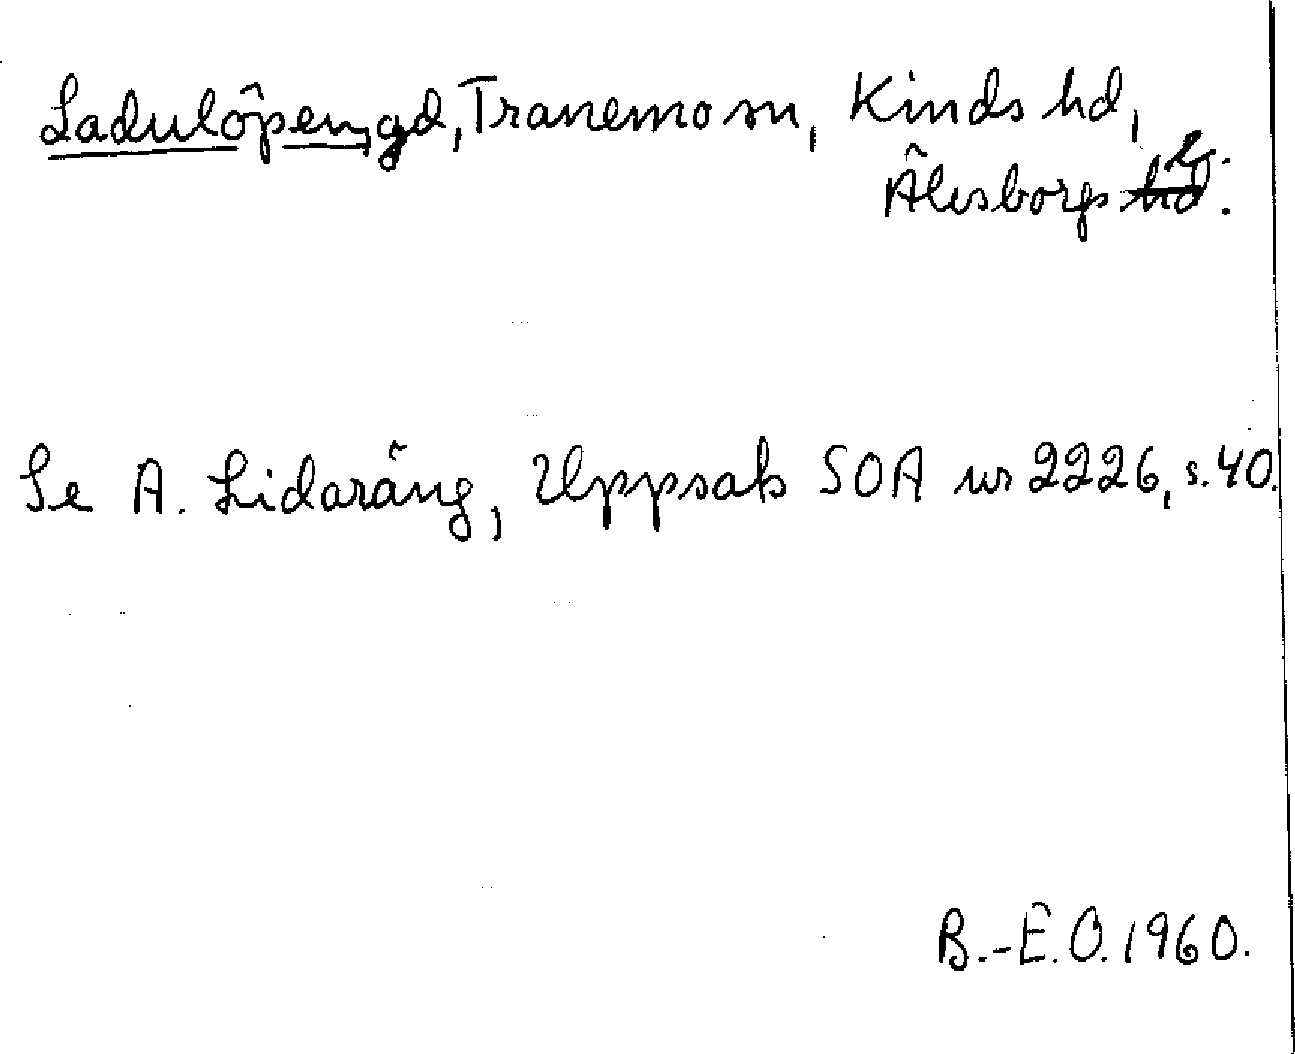 Ladulöpen, gd, Tranemo sn, Kinds hd,
Älvsborgs l.
Se A. Lidaräng, Uppsala SOA nr 2226, s. 40.
B.-E.O. 1960.